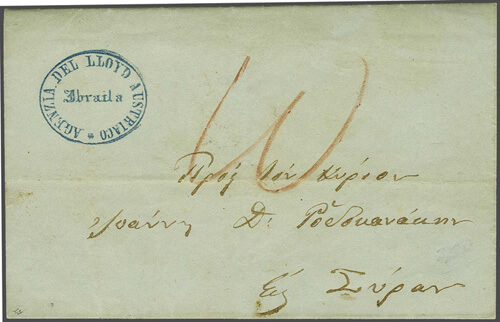 AGENZIA DEL LLOYD AUSTRIACO *
Ibraila
10
Πρὸς τὸν Κύριον
Ἰωάννη Δ: Ῥοδοκανάκην
Εἰς Σύραν